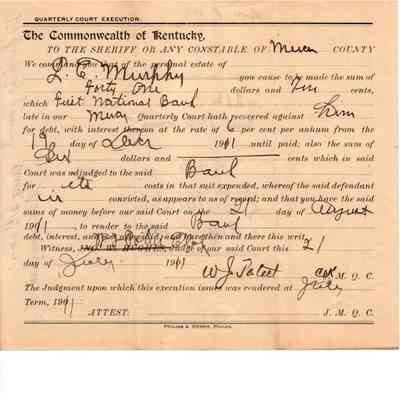 QUARTERLY COURT EXECUTION.
The Commonwealth of Kentucky,
TO THE SHERIFF OR ANY CONSTABLE OF Mercer COUNTY
We command you that of the personal estate of
Murphy
you cause to be made the sum of
Forty One dollars and Ten cents,
which First National Bank
late in our Mercer Quarterly Court hath recovered against him
for debt, with interest thereon at the rate of 6 per cent per annum from the
19 day of 1911 until paid; also the sum of
dollars and cents which in said
Court was adjudged to the said Bank
for costs in that suit expended, whereof the said defendant
is convicted, as appears to us of record; and that you have the said
sums of money before our said Court on the 21 day of August
1911, to render to the said Bank
debt, interest, and have then and there this writ.
Witness, Judge of our said Court this 21
day of July 1911
W J Tatest Clk M. Q. C.
The Judgment upon which this execution issue was rendered at July
Term, 1911
ATTEST: J. M. Q. C.